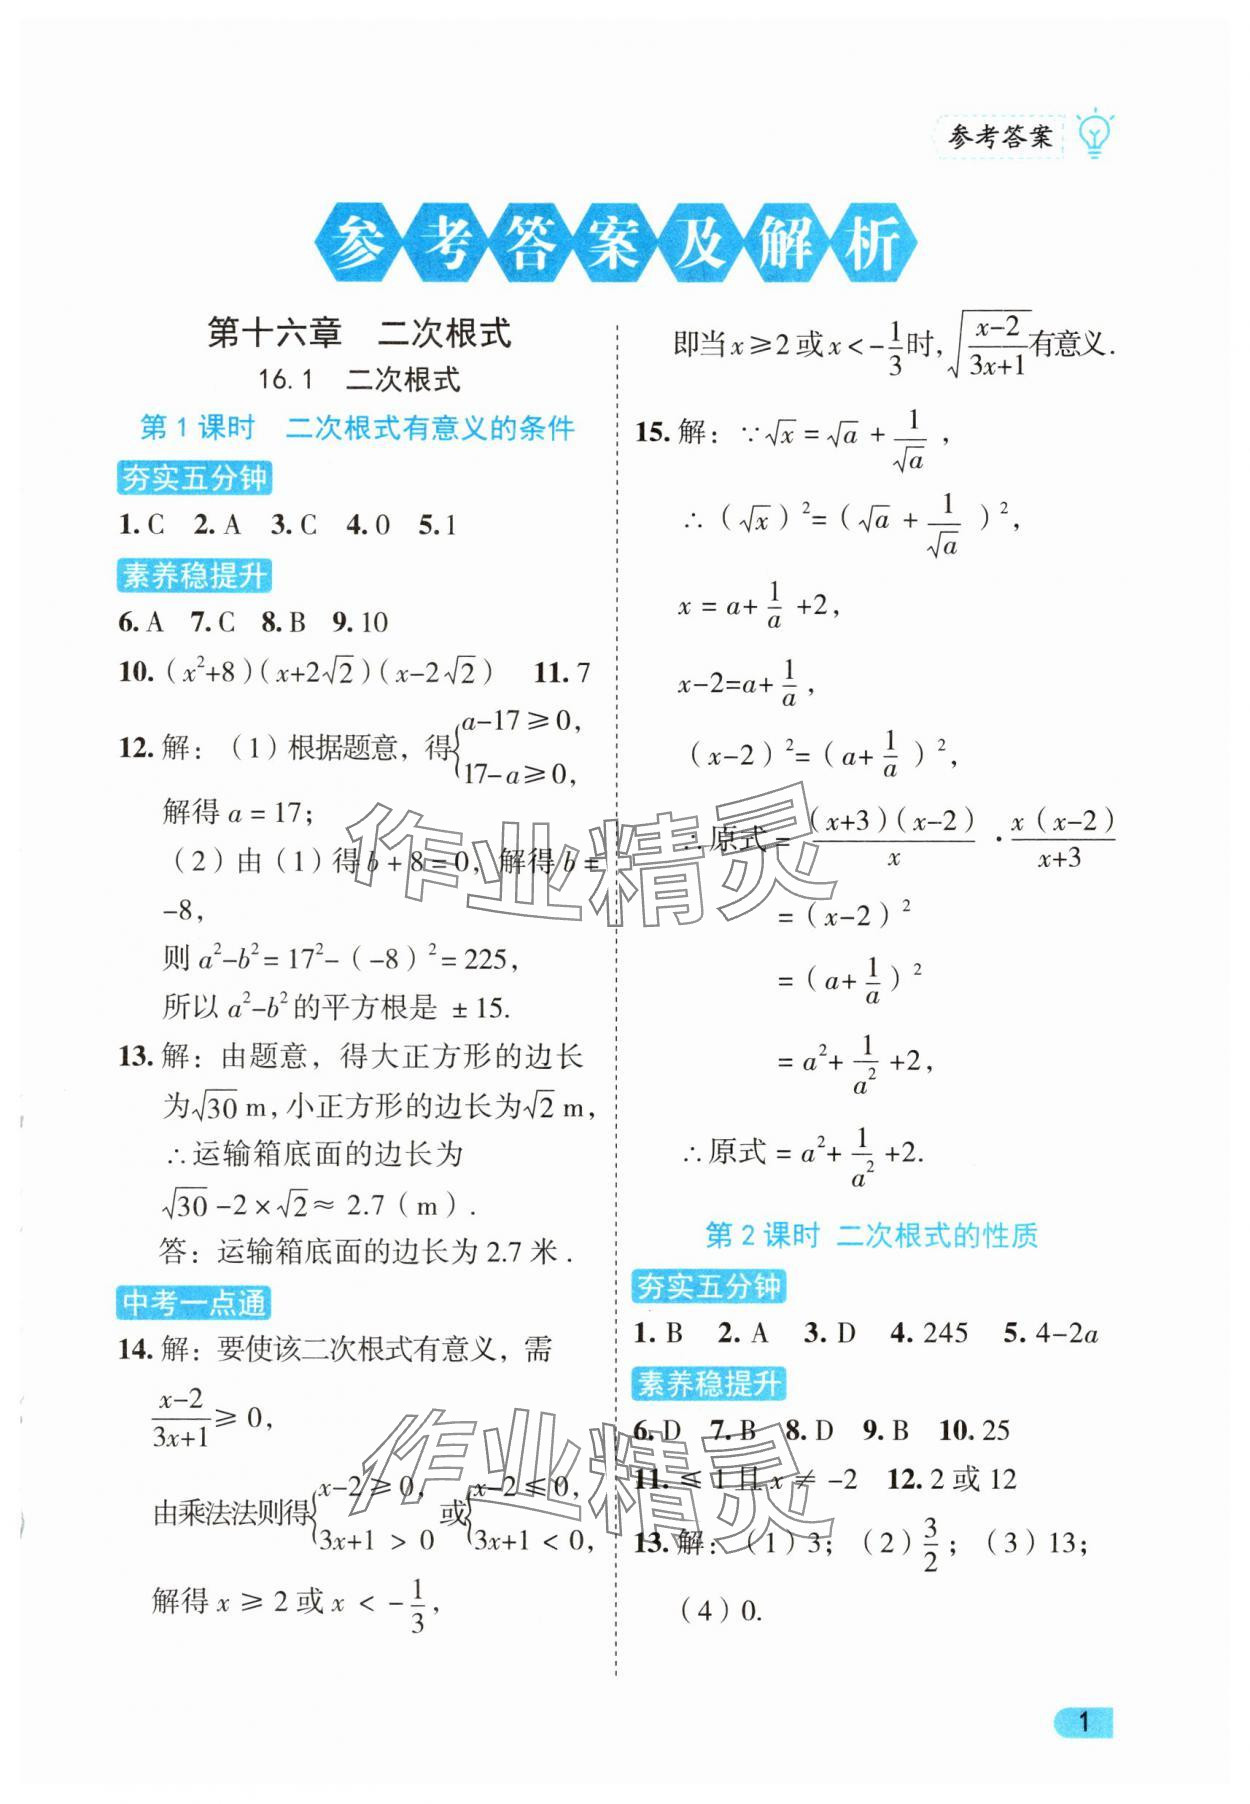 参考答案
参考答案及解析
第十六章 二次根式
16.1 二次根式
第1课时 二次根式有意义的条件
夯实五分钟
1.C 2.A 3.C 4.0 5.1
素养稳提升
6.A 7.C 8.B 9.10
10.(x²+8)(x+2√2)(x-2√2) 11.7
12.解：(1)根据题意，得{a-17≥0, 17-a≥0,
解得a=17；
(2)由(1)得b+8=0，解得b=
-8，
则a²-b²=17²-(-8)²=225，
所以a²-b²的平方根是±15.
13.解：由题意，得大正方形的边长
为√30 m，小正方形的边长为√2 m，
∴运输箱底面的边长为
√30-2×√2≈2.7(m).
答：运输箱底面的边长为2.7米.
中考一点通
14.解：要使该二次根式有意义，需
(x-2)/(3x+1)≥0，
由乘法法则得{x-2≥0, 3x+1>0 或{x-2≤0, 3x+1<0,
解得x≥2或x<-1/3，
即当x≥2或x<-1/3时，√((x-2)/(3x+1))有意义.
15.解：∵√x=√a+1/√a，
∴(√x)²=(√a+1/√a)²，
x=a+1/a+2，
x-2=a+1/a，
(x-2)²=(a+1/a)²，
∴原式=(x+3)(x-2)/x·x(x-2)/(x+3)
=(x-2)²
=(a+1/a)²
=a²+1/a²+2，
∴原式=a²+1/a²+2.
第2课时 二次根式的性质
夯实五分钟
1.B 2.A 3.D 4.245 5.4-2a
素养稳提升
6.D 7.B 8.D 9.B 10.25
11.≤1且x≠-2 12.2或12
13.解：(1)3；(2)3/2；(3)13；
(4)0.
作业精灵
作业精灵
1